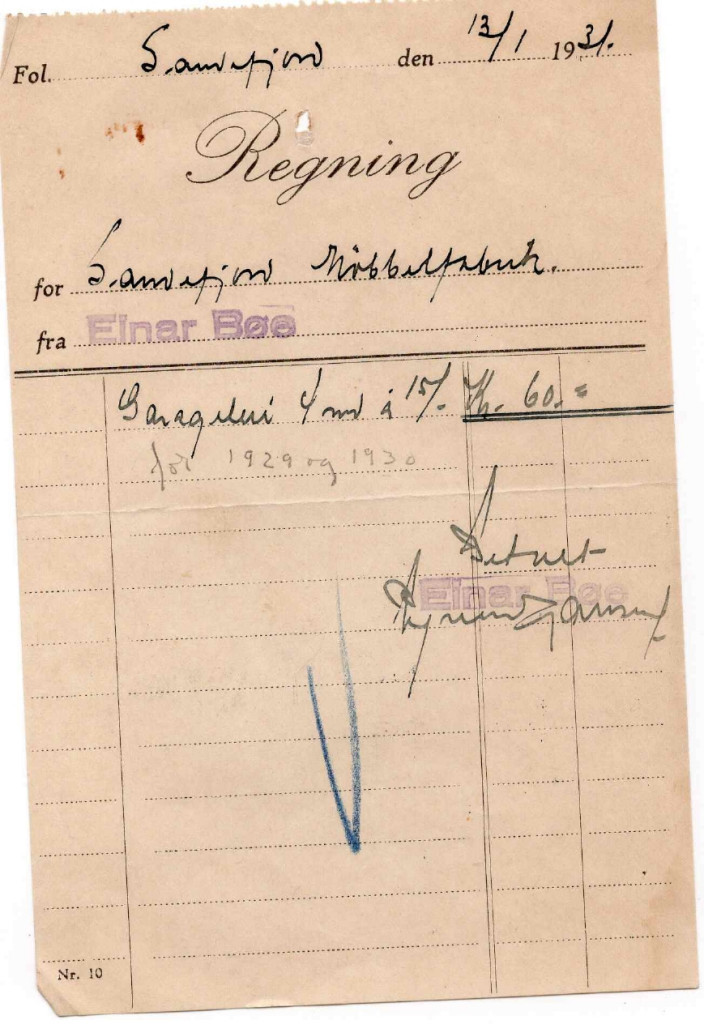 Fol. Sandefjord den 13/1 1931.
Regning
for Sandefjord Möbbelfabrik.
fra Einar Bøe
Garageleie 4 md à 15/- Kr. 60.=
for 1929 og 1930
Betalt
Einar Bøe
Nr. 10